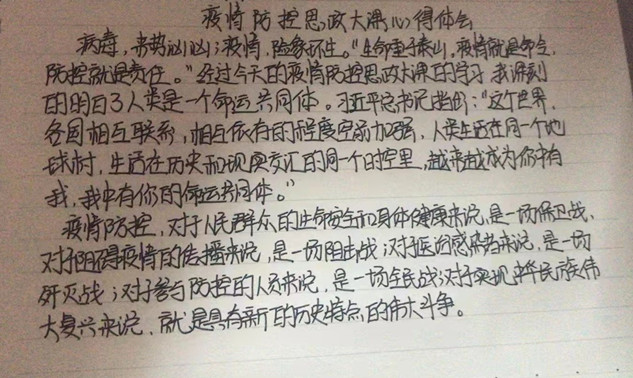 疫情防控思政大课心得体会
病毒，来势汹汹；疫情，险象环生。"生命重于泰山，疫情就是命令，
防控就是责任。"经过今天的疫情防控思政大课的学习，我深刻
的明白了人类是一个命运共同体。习近平总书记指出："这个世界，
各国相互联系，相互依存的程度空前加强，人类生活在同一个地
球村，生活在历史和现实交汇的同一个时空里，越来越成为你中有
我，我中有你的命运共同体。"
疫情防控，对于人民群众的生命安全和身体健康来说，是一场保卫战，
对于阻碍疫情的传播来说，是一场阻击战；对于医治感染者来说，是一场
歼灭战；对于参与防控的人员来说，是一场全民战；对于实现中华民族伟
大复兴来说，就是具有新的历史特点的伟大斗争。